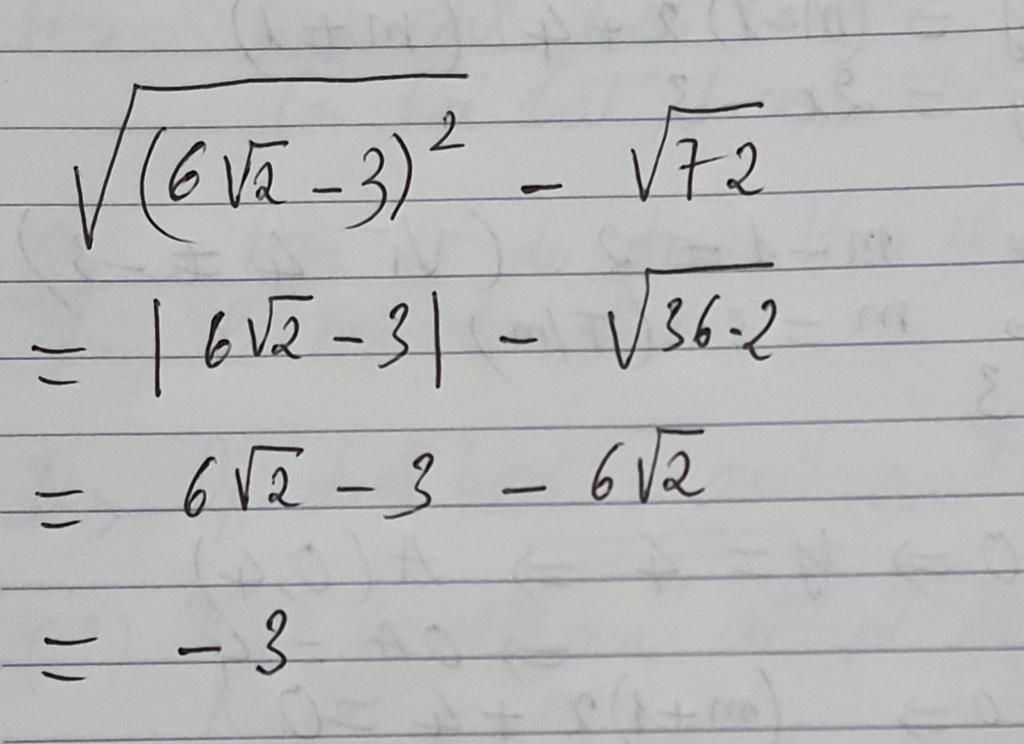 √(6√2 - 3)² - √72
= |6√2 - 3| - √36·2
= 6√2 - 3 - 6√2
= -3